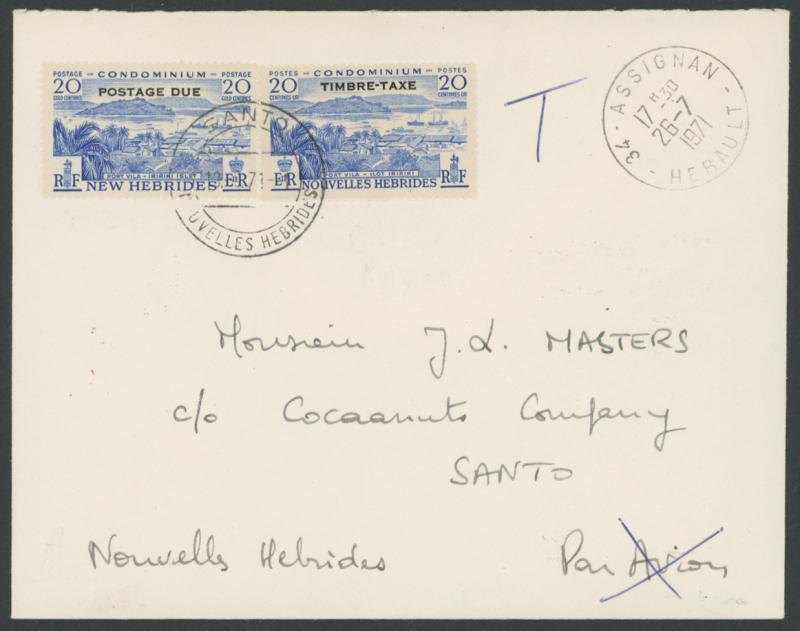 POSTAGE CONDOMINIUM POSTAGE
20 GOLD CENTIMES 20 GOLD CENTIMES
POSTAGE DUE
PORT VILA - IRIRIKI ISLET
RF NEW HEBRIDES EIIR
POSTES CONDOMINIUM POSTES
20 CENTIMES OR 20 CENTIMES OR
TIMBRE-TAXE
PORT VILA - ILOT IRIRIKI
EIIR NOUVELLES HEBRIDES RF
SANTO
NOUVELLES HEBRIDES
T
34 - ASSIGNAN -
17 H 30
26-7
1971
- HERAULT -
Monsieur J.L. MASTERS
c/o Cocoanuts Company
SANTO
Nouvelles Hebrides Par Avion